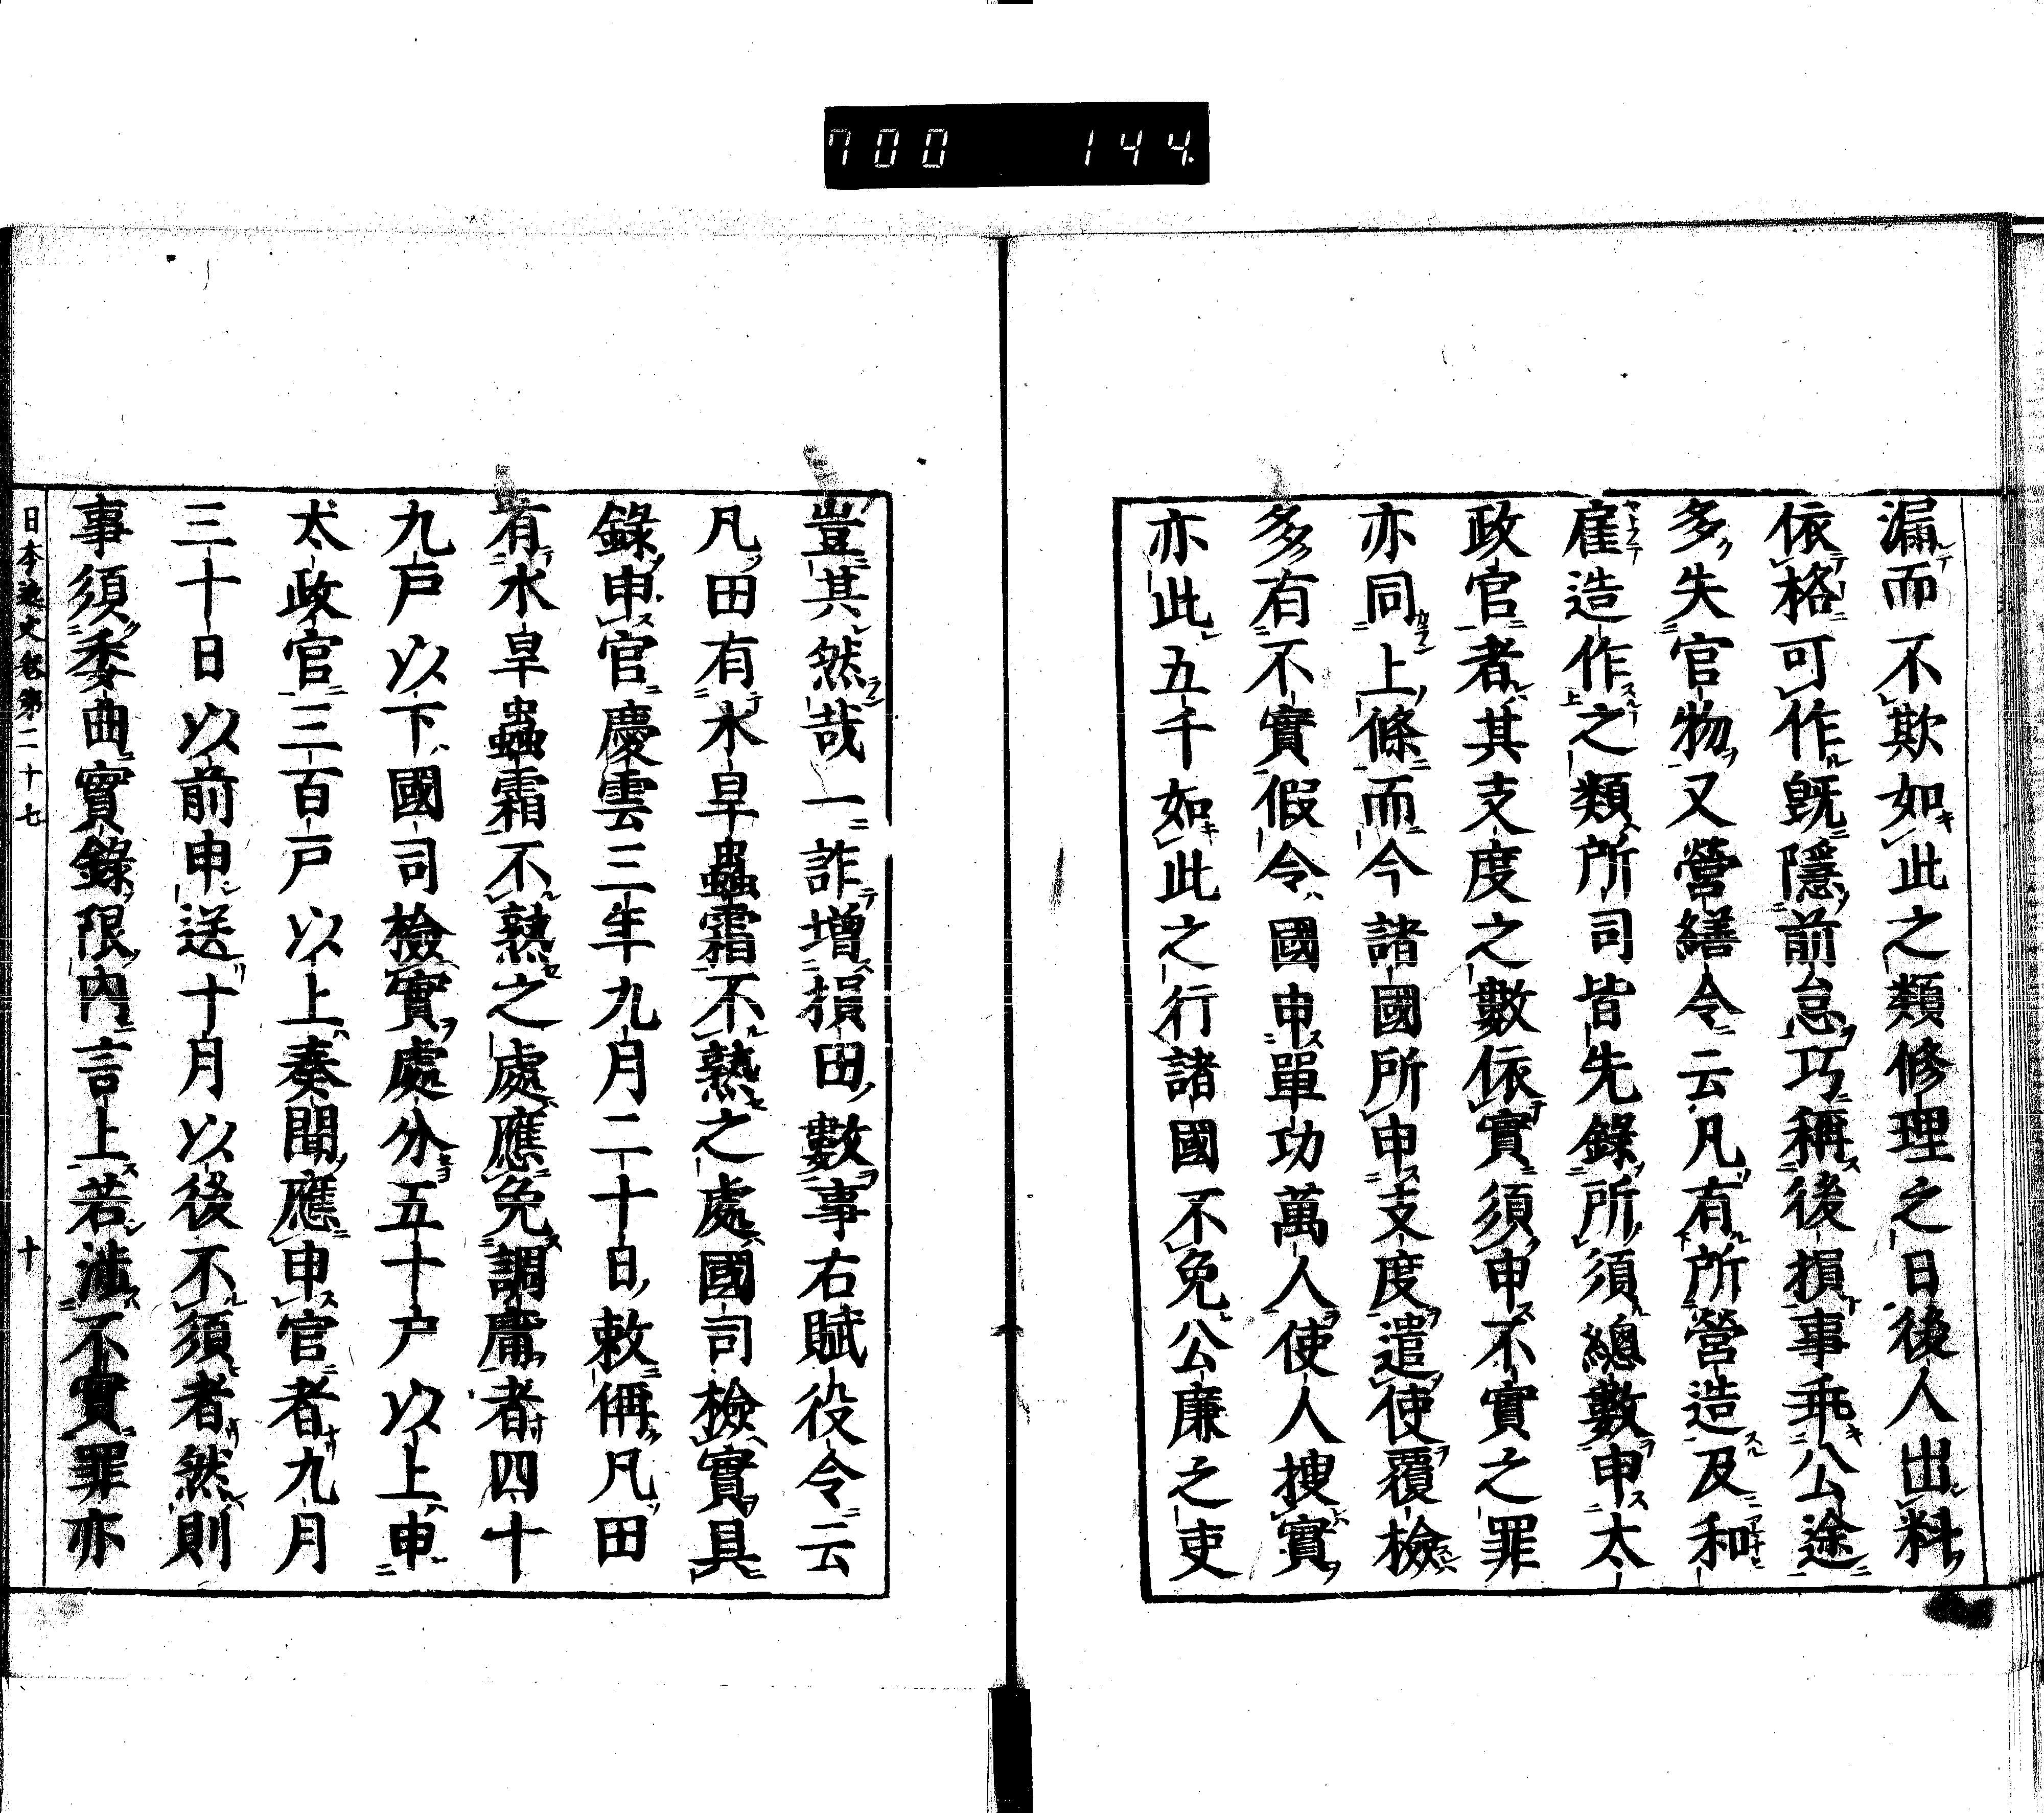 700 144
漏而不欺如此之類修理之日後人出料
依格可作既隱前怠巧稱後損事乖公途
多失官物又營繕令云凡有所營造及和
雇造作之類所司皆先錄所須總數申太
政官者其支度之數依實須申不實之罪
亦同上條而今諸國所申支度遣使覆檢
多有不實假令國申單功萬人使人搜實
亦此五千如此之行諸國不免公廉之吏
豈其然哉一詐增損田數事右賦役令云
凡田有水旱蟲霜不熟之處國司檢實具
錄申官慶雲三年九月二十日敕偁凡田
有水旱蟲霜不熟之處應免調庸者四十
九戶以下國司檢實處分五十戶以上申
太政官三百戶以上奏聞應申官者九月
三十日以前申送十月以後不須者然則
事須委曲實錄限內言上若涉不實罪亦
日本逸史卷第二十七 十